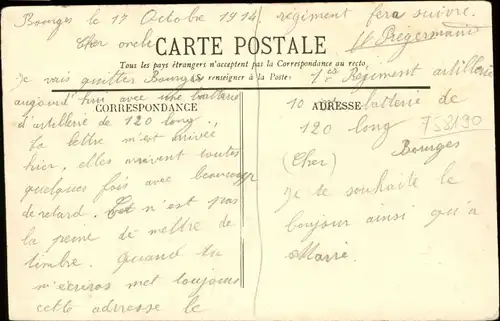 Bourges le 17 Octobre 1914.
Cher oncle
CARTE POSTALE
Tous les pays étrangers n'acceptent pas la Correspondance au recto,
renseigner à la Poste
CORRESPONDANCE
Je vais quitter Bourges
aujourd'hui avec une batterie
d'artillerie de 120 long.
La lettre m'est arrivée
hier, elles arrivent toutes
quelques fois avec beaucoup
de retard. n'est pas
la peine de mettre de
timbre. Quand tu
m'écriras met toujours
cette adresse le
régiment fera suivre.
1er Régiment artillerie
ADRESSE
10 batterie de
120 long
758190
Bourges
(Cher)
Je te souhaite le
bonjour ainsi qu'à
Marie.